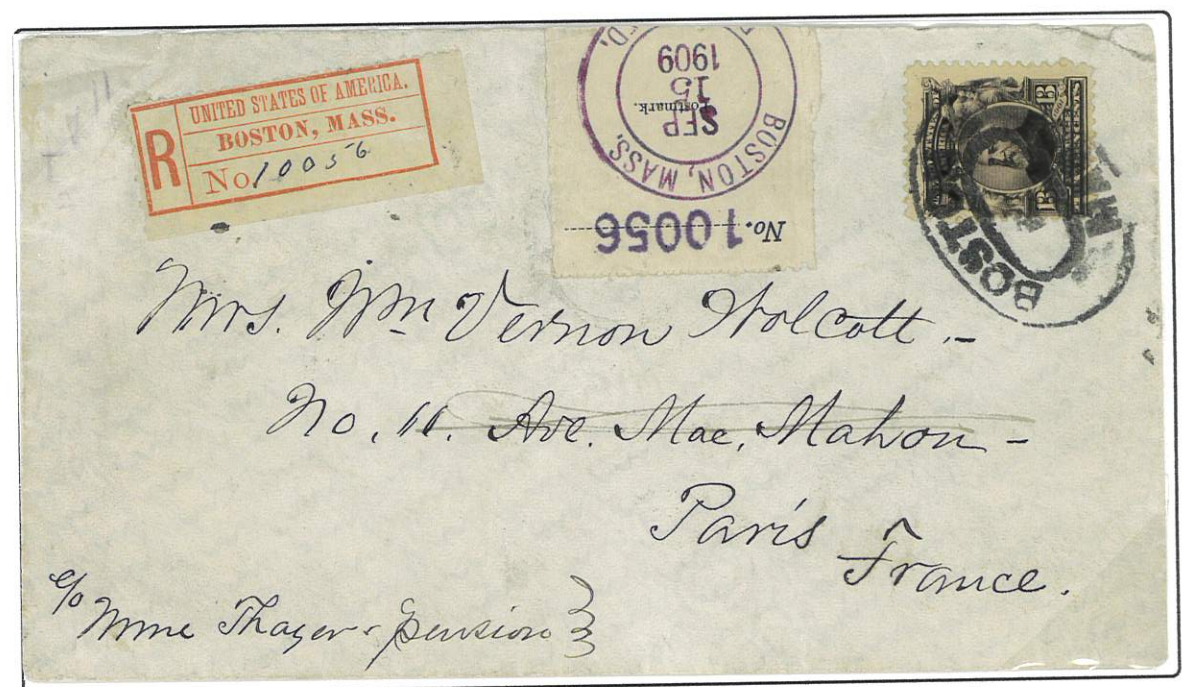 R
UNITED STATES OF AMERICA.
BOSTON, MASS.
No. 10056
No. 10056
BOSTON, MASS.
SEP
Postmark.
15
1909
D.
13
13
CENTS
BOST
Mrs. Wm Vernon Wolcott.-
No. 11. Ave. Mac, Mahon -
Paris
France.
c/o Mme Thayer - pension